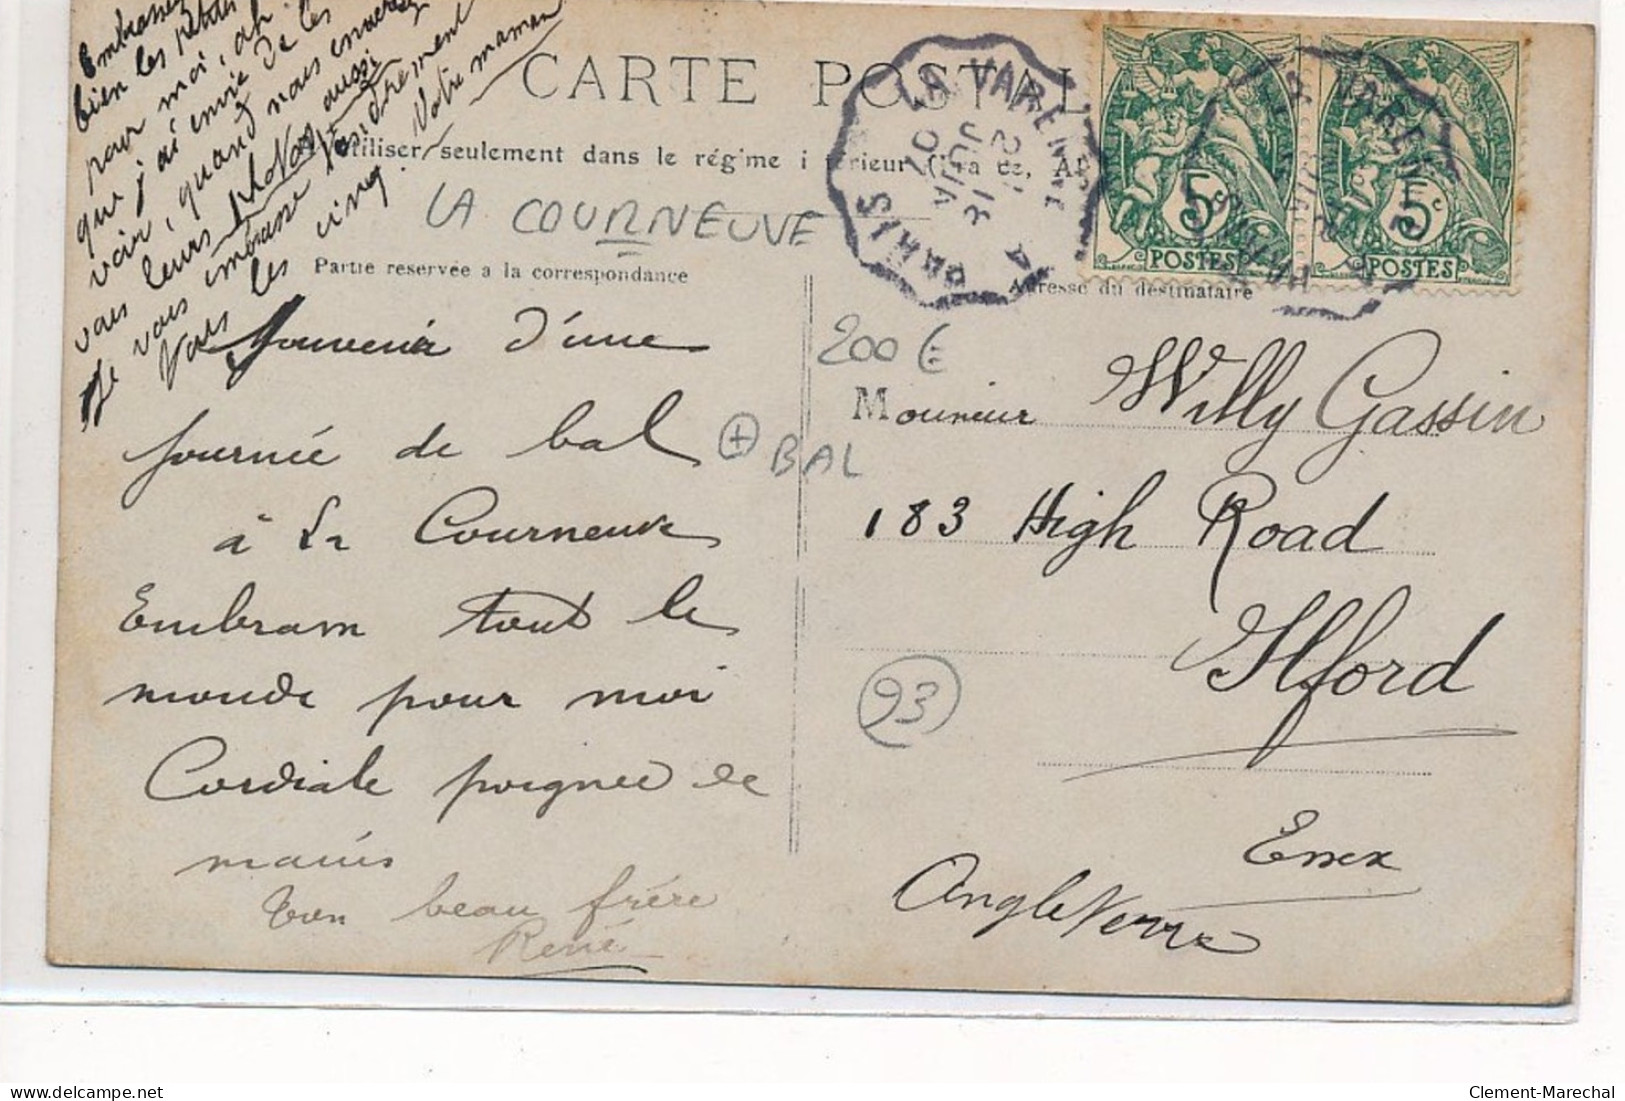 Embrassez
bien les petites
pour moi, ah.
que j'ai envie de les
voir, quand nous enverrez
vous leurs photos
Je vous embrasse aussi
tous les cinq
Votre maman
CARTE POSTALE
A utiliser seulement dans le régime intérieur
LA COURNEUVE
Partie reservée a la correspondance
Adresse du destinataire
PARIS A LA VARENNE
21 JUIL 07
5c 5c
POSTES POSTES
Souvenir d'une
journée de bal
à La Courneuve
Embrasse tout le
monde pour moi
Cordiale poignée de
mains
Ton beau frère
René
200 €
+ BAL
93
Monsieur Willy Gassin
183 High Road
Ilford
Essex
Angleterre
delcampe.net
Clement-Marechal